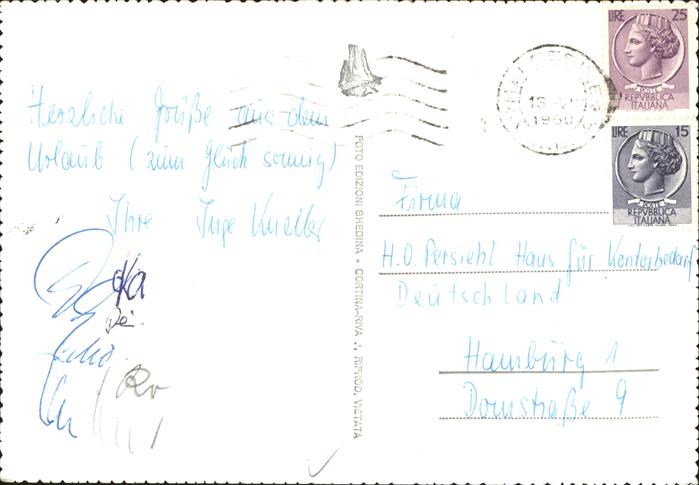 Herzliche Grüße aus dem
Urlaub (zum Glück sonnig)
Ihre Inge Kneller
Ka
Rv
FOTO EDIZIONI GHEDINA - CORTINA-RIVA
RIPROD. VIETATA
1960
LIRE 25
POSTE
REPVBBLICA
ITALIANA
LIRE 15
POSTE
REPVBBLICA
ITALIANA
Firma
H.O. Persiehl Haus für Kontorbedarf
Deutschland
Hamburg 1
Domstraße 9